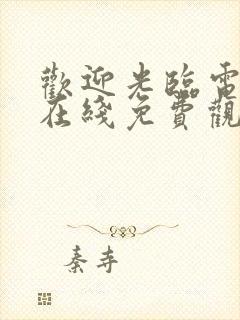 歡迎光臨電
在綫免費觀
秦寺